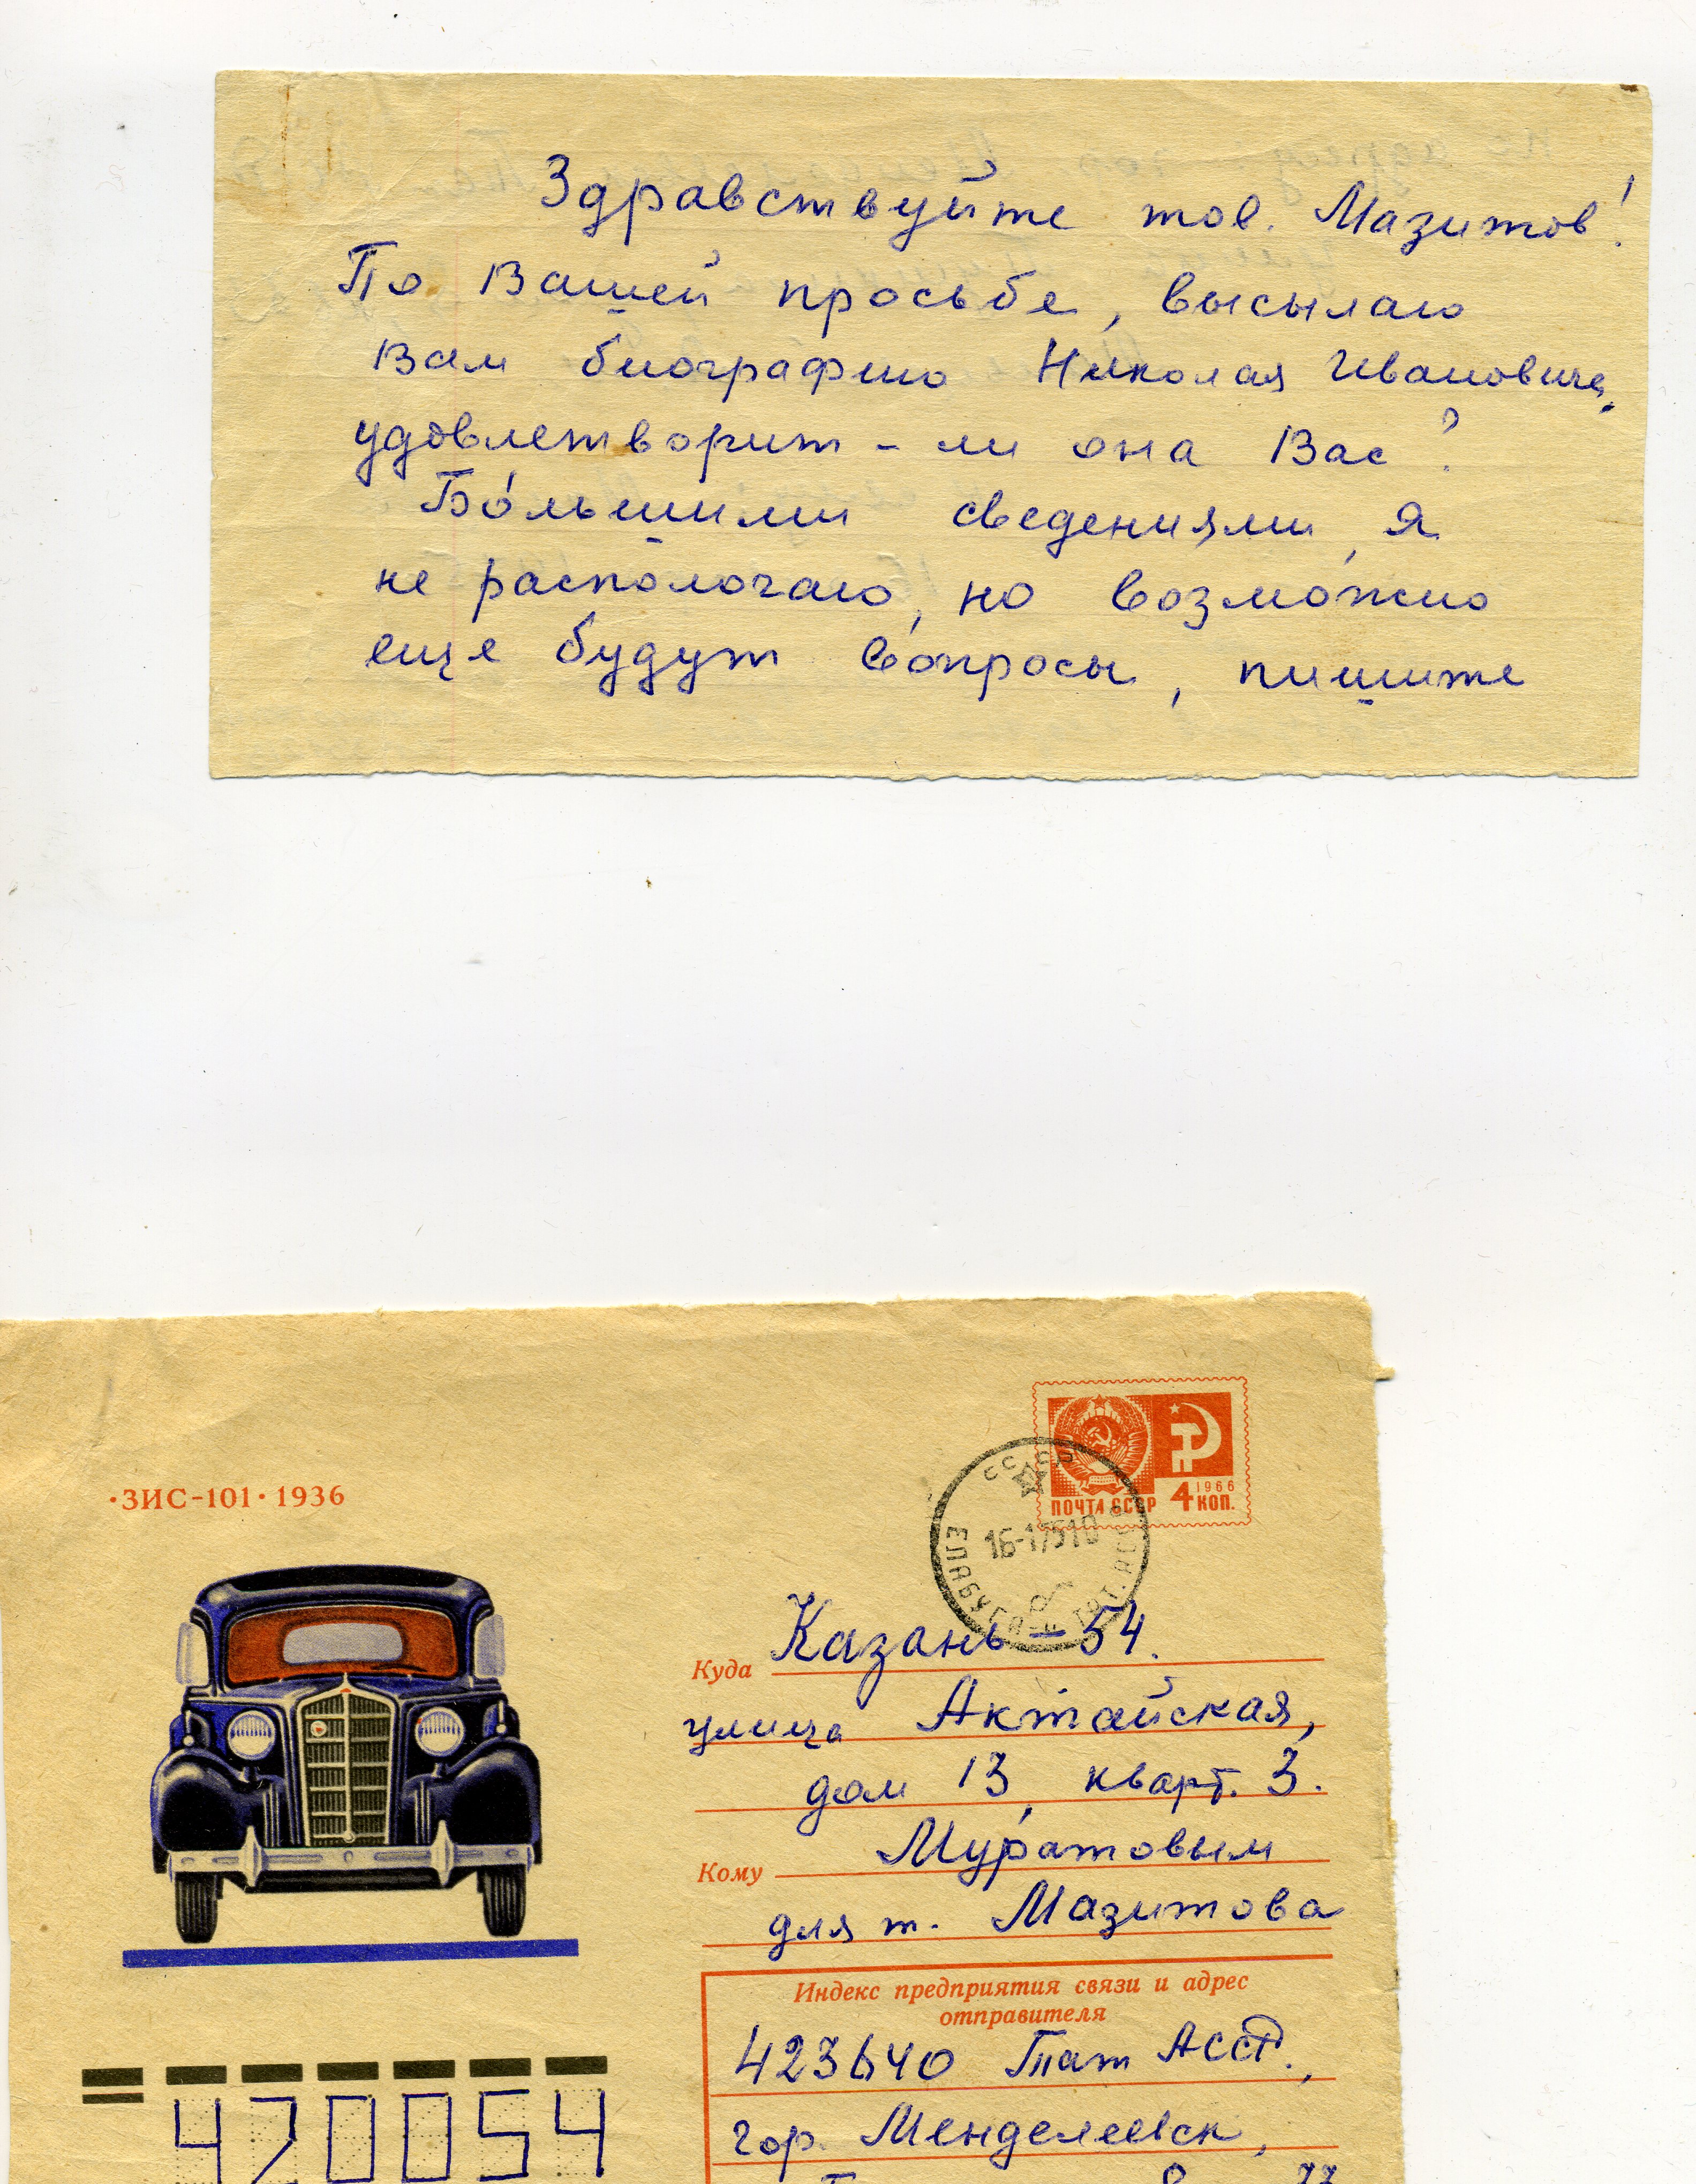 Здравствуйте тов. Мазитов!
По Вашей просьбе, высылаю
Вам биографию Николая Ивановича,
удовлетворит - ли она Вас?
Бо́льшими сведениями, я
не распологаю, но возможно
еще будут вопросы, пишите
·ЗИС-101· 1936
ПОЧТА СССР 4 КОП.
1966
СССР
16-1 75 10
ЕЛАБУГА
Куда Казань-54.
улица Актайская,
дом 13, кварт. 3.
Кому Муратовым
для т. Мазитова
Индекс предприятия связи и адрес
отправителя
423640 Тат АССР.,
гор. Менделеевск,
420054